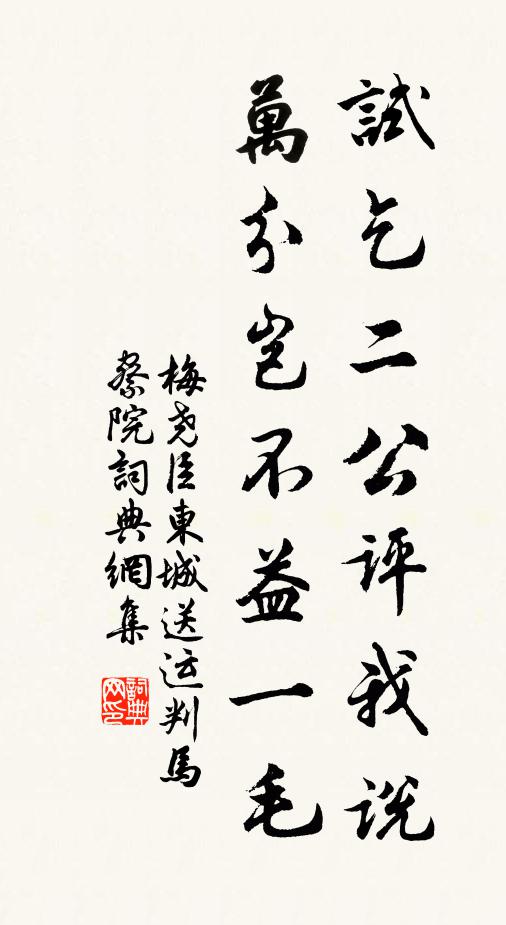 試乞二公評我說
萬分豈不益一毛
梅堯臣東城送运判馬
察院詞典網集
詞典
网印